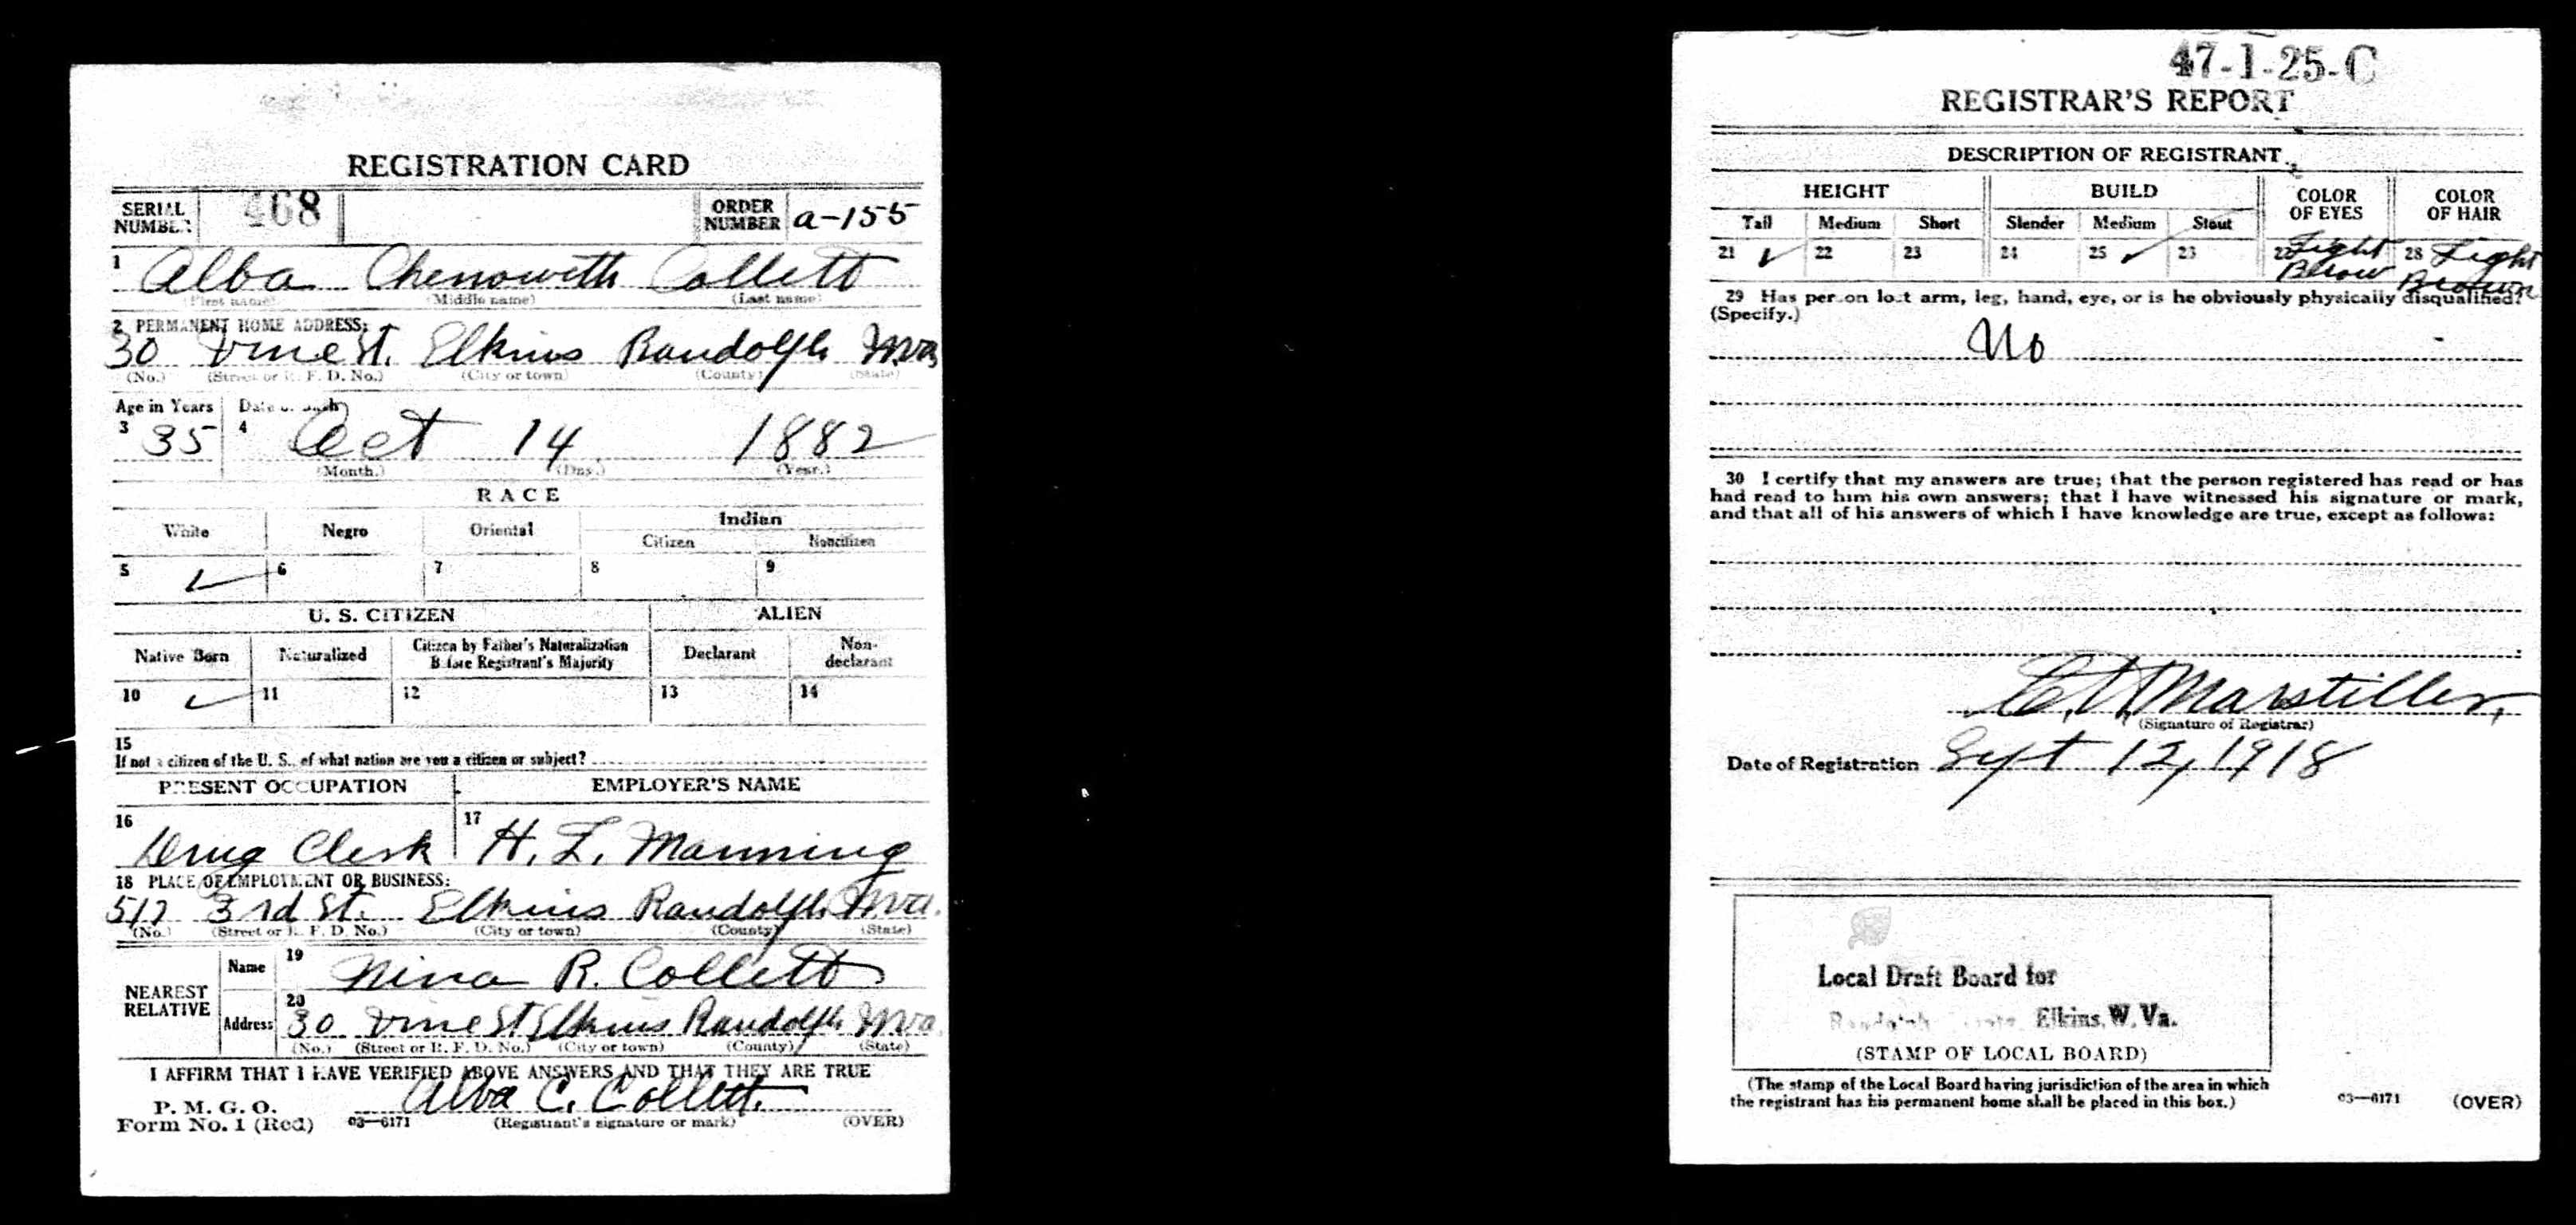 REGISTRATION CARD
SERIAL NUMBER 468 ORDER NUMBER a-155
1 Alba Chenowith Collett
(First name) (Middle name) (Last name)
2 PERMANENT HOME ADDRESS:
30 Vine St. Elkins Randolph Wva
(No.) (Street or R. F. D. No.) (City or town) (County) (State)
Age in Years Date of Birth
3 35 4 Oct 14 1882
(Month.) (Day.) (Year.)
RACE
White Negro Oriental Indian
Citizen Noncitizen
5 ✓ 6 7 8 9
U. S. CITIZEN ALIEN
Native Born Naturalized Citizen by Father's Naturalization Before Registrant's Majority Declarant Non-declarant
10 ✓ 11 12 13 14
15
If not a citizen of the U. S., of what nation are you a citizen or subject?
PRESENT OCCUPATION EMPLOYER'S NAME
16 Drug Clerk 17 H. L. Manning
18 PLACE OF EMPLOYMENT OR BUSINESS:
517 3rd St. Elkins Randolph Wva.
(No.) (Street or R. F. D. No.) (City or town) (County) (State)
NEAREST RELATIVE
Name 19 Nina R. Collett
Address 20 30 Vine St Elkins Randolph Wva
(No.) (Street or R. F. D. No.) (City or town) (County) (State)
I AFFIRM THAT I HAVE VERIFIED ABOVE ANSWERS AND THAT THEY ARE TRUE
P. M. G. O.
Form No. 1 (Red) 03—6171 Alba C. Collett.
(Registrant's signature or mark) (OVER)
47-1-25-C
REGISTRAR'S REPORT
DESCRIPTION OF REGISTRANT
HEIGHT BUILD COLOR OF EYES COLOR OF HAIR
Tall Medium Short Slender Medium Stout
21 ✓ 22 23 24 25 ✓ 23 27 Light 28 Light
Brown
29 Has person lost arm, leg, hand, eye, or is he obviously physically disqualified?
(Specify.)
No
30 I certify that my answers are true; that the person registered has read or has
had read to him his own answers; that I have witnessed his signature or mark,
and that all of his answers of which I have knowledge are true, except as follows:
Marstiller,
(Signature of Registrar)
Date of Registration Sept 12, 1918
Local Draft Board for
Randolph Elkins, W. Va.
(STAMP OF LOCAL BOARD)
(The stamp of the Local Board having jurisdiction of the area in which
the registrant has his permanent home shall be placed in this box.)
03—6171 (OVER)